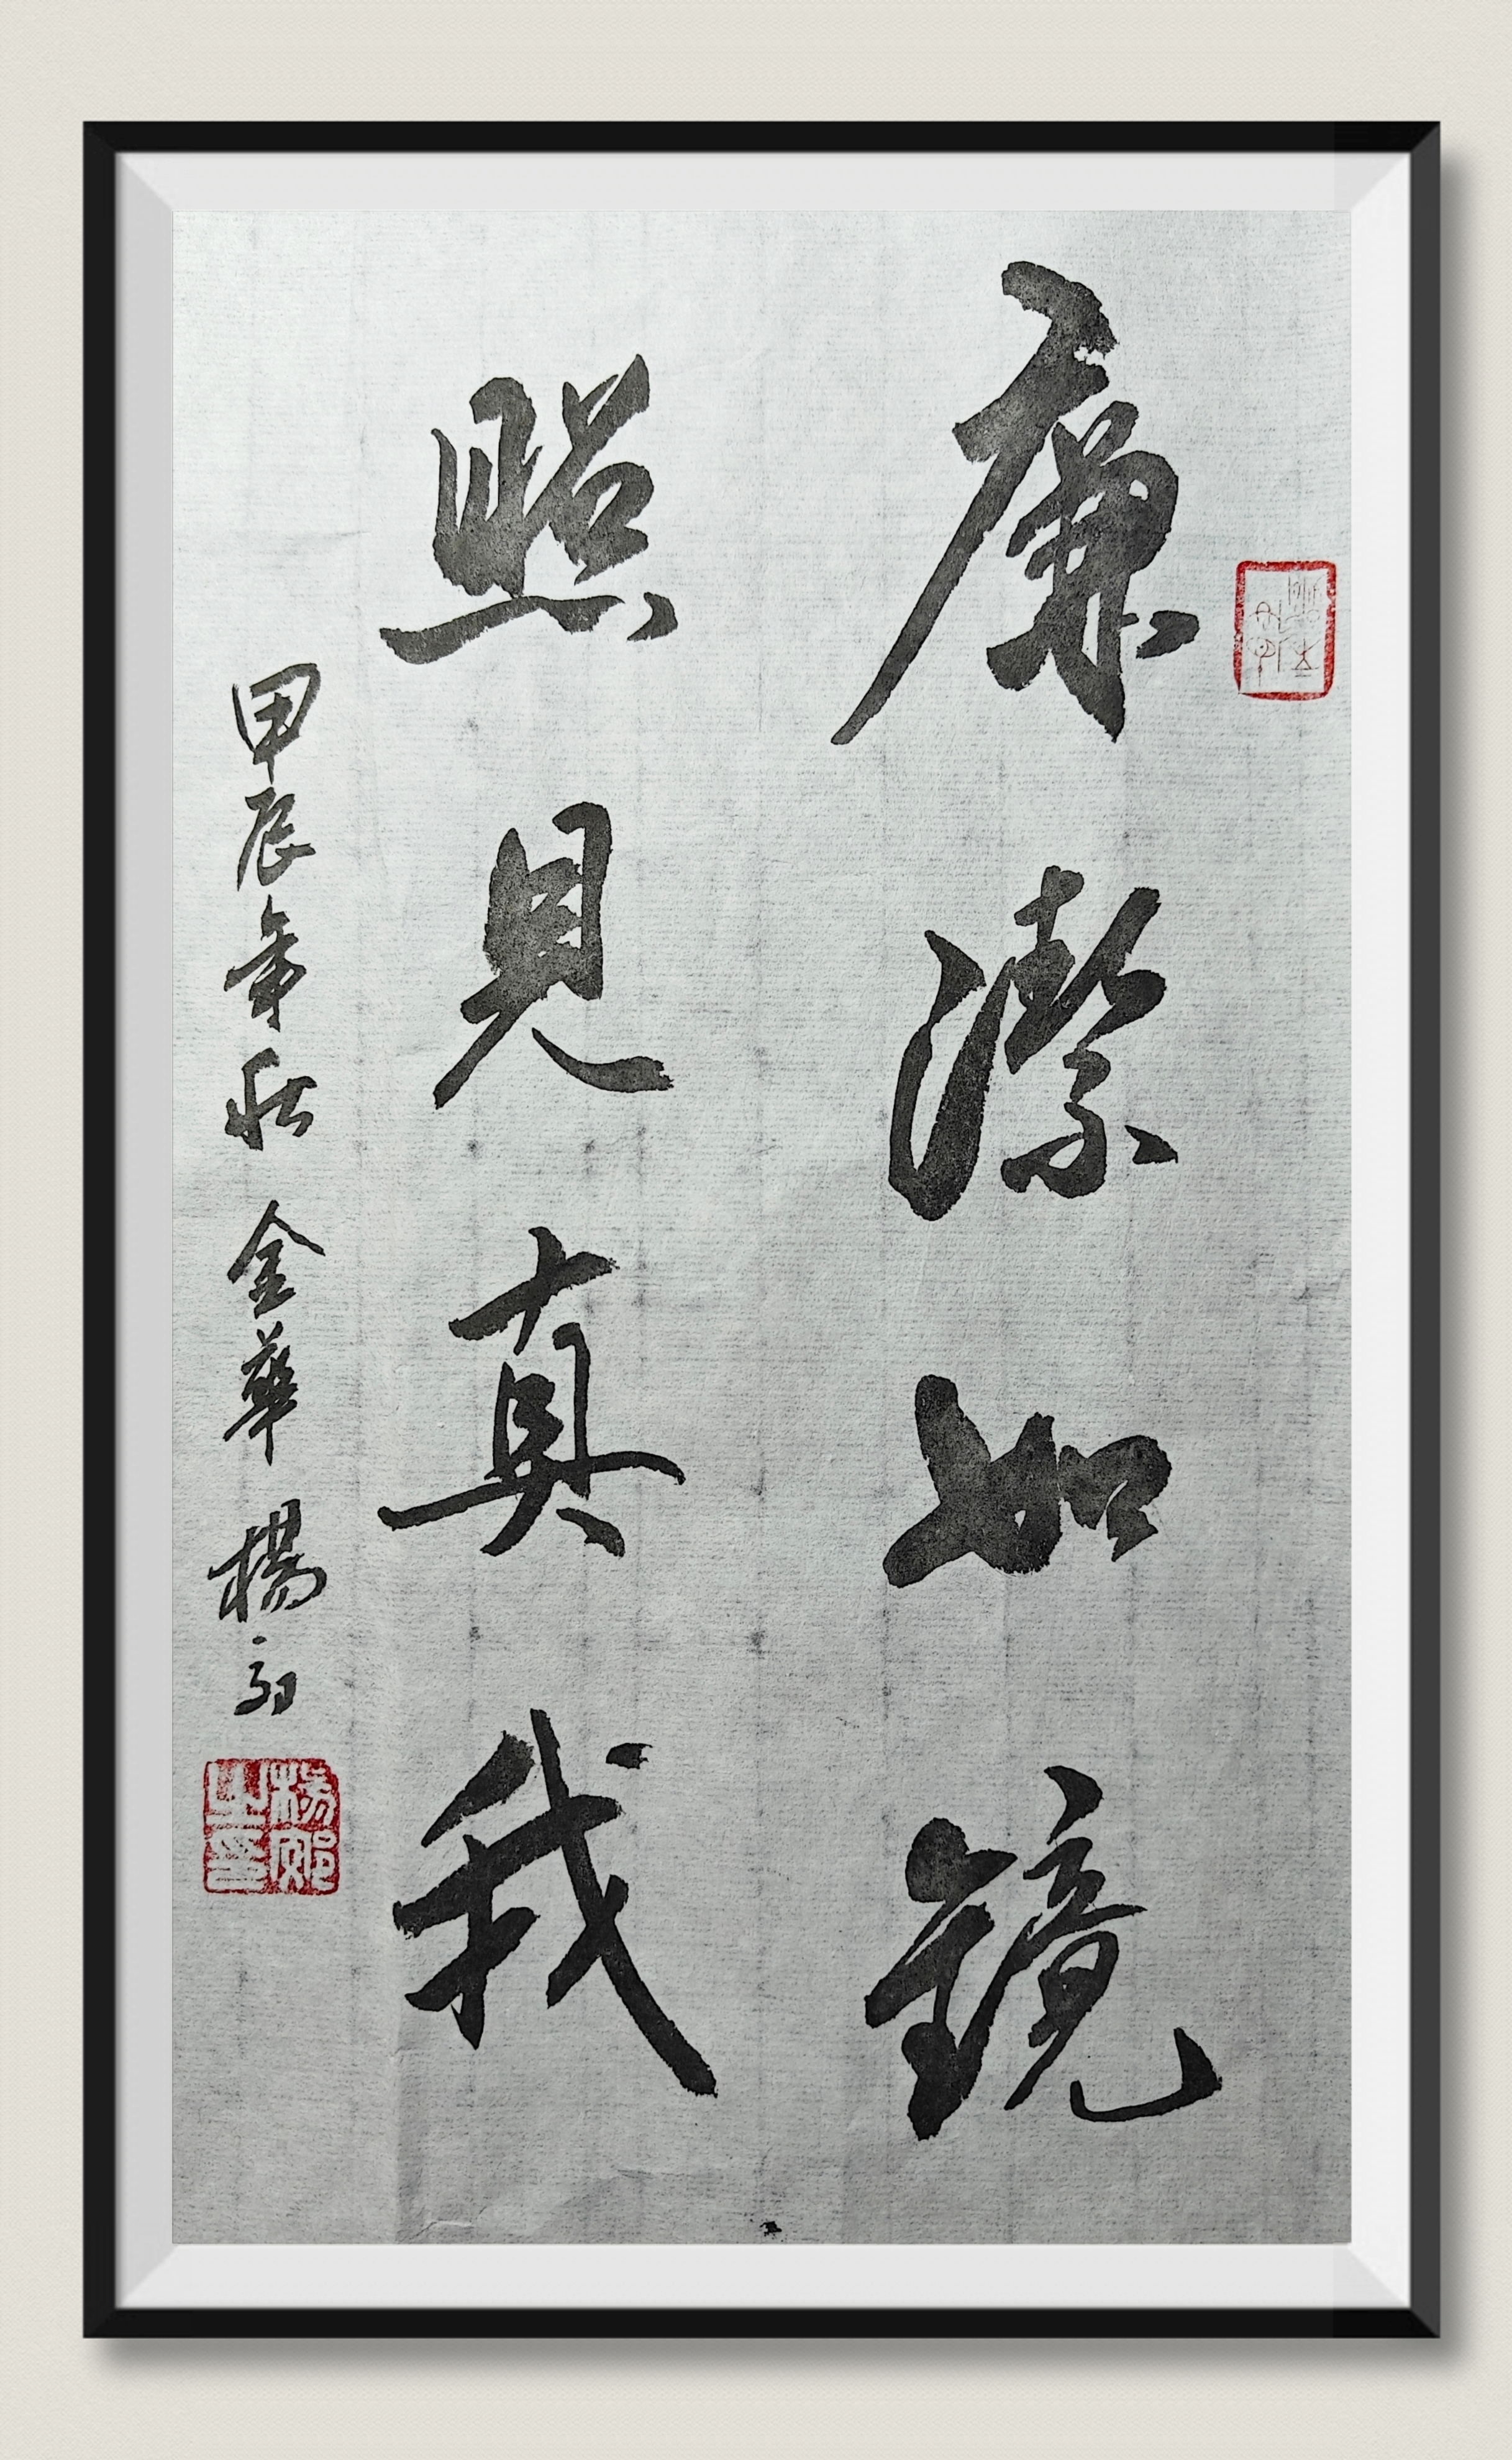 廉潔如鏡
照見真我
甲辰年秋 金華 楊